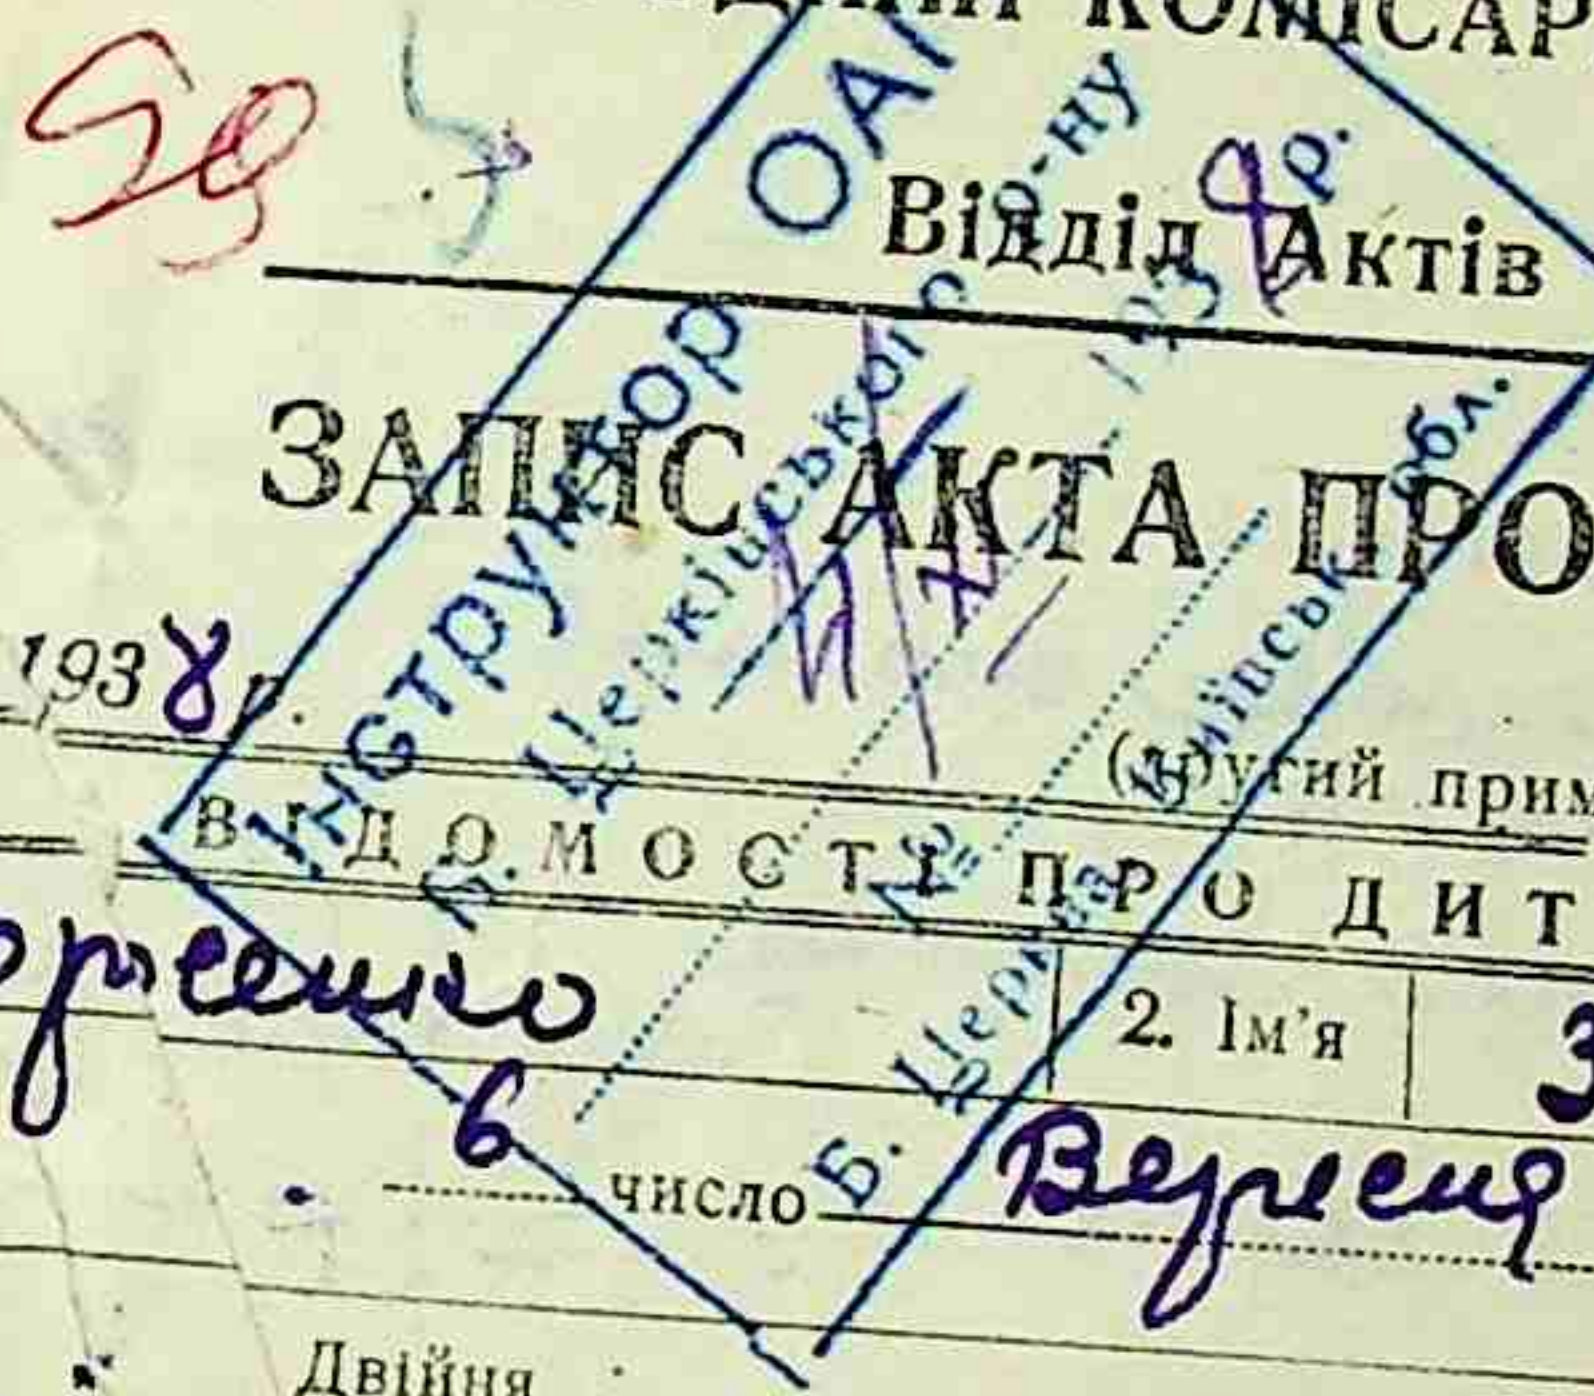 КОМІСАР
59
Відділ Актів
ЗАПИС АКТА ПРО
1938 р.
(другий прим
ВІДОМОСТІ ПРО ДИТ
2. Ім'я
6 число Вересня
Двійня
Інструктор ОАГ
Б. Церківського р-ну
193 8 р.
№
Б. Церква Київськ обл.